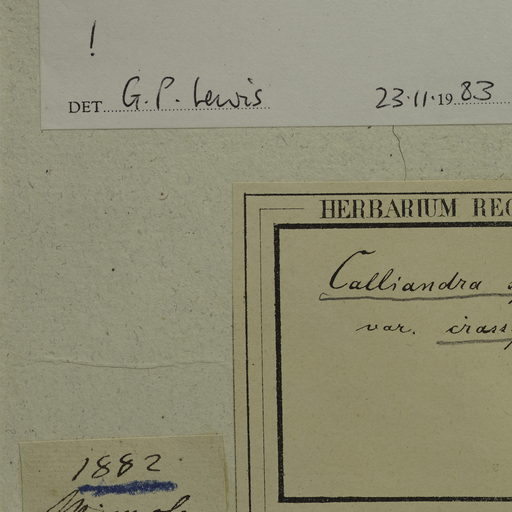 !
DET. G. P. Lewis 23·11·1983
HERBARIUM REG
Calliandra
var. crass
1882